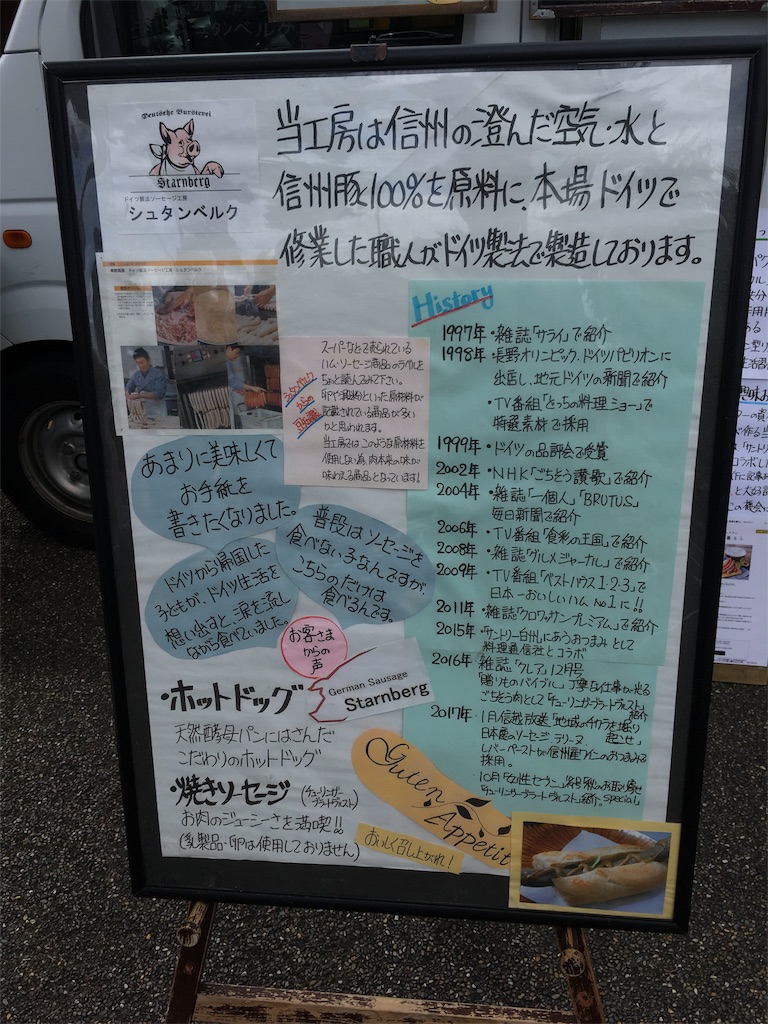 Deutsche Wursterei
Starnberg
ドイツ製法ソーセージ工房
シュタンベルク
当工房は信州の澄んだ空気・水と
信州豚100%を原料に、本場ドイツで
修業した職人がドイツ製法で製造しております。
スーパーなどで売られている
ハム・ソーセージ商品のラベルを
ちょと読んでみて下さい。
卵や乳、穀物といった原材料が
記載されている商品が多い
かと思われます。
当工房ではこのような原材料を
使用しない為、肉本来の味が
味わえる商品となっています!
シュタンベルク
からの
豆知識
あまりに美味しくて
お手紙を
書きたくなりました。
普段はソーセージを
食べない子なんですが、
こちらのだけは
食べるんです。
ドイツから帰国した
子どもが、ドイツ生活を
想い出すと、涙を流し
ながら食べていました。
お客さま
からの
声
German Sausage
Starnberg
History
1997年・雑誌「サライ」で紹介
1998年・長野オリンピック、ドイツパビリオンに
出店し、地元ドイツの新聞で紹介
・TV番組「どっちの料理ショー」で
特選素材で採用
1999年・ドイツの品評会で受賞
2002年・NHK「ごちそう讃歌」で紹介
2004年・雑誌「一個人」「BRUTUS」
毎日新聞で紹介
2006年・TV番組「食彩の王国」で紹介
2008年・雑誌「グルメジャーナル」で紹介
2009年・TV番組「ベストハウス1・2・3」で
日本一おいしいハムNo1に!!
2011年・雑誌「クロワッサンプレミアム」で紹介
2015年・「サントリー白州」にあうおつまみとして
料理通信社とコラボ
2016年 雑誌「クレア」12月号
「贈りものバイブル」丁寧な仕事が光る
ごちそう肉として「チューリンガーブラートヴルスト」紹介
2017年・1月信越放送「地域のチカラを掘り起こせ」
日本最のソーセージ テリーヌ
レバーペーストが信州産ワインのおつまみで
採用。
10月「女性セブン」
「チューリンガーブラートヴルスト」紹介。special
・ホットドッグ
天然酵母パンにはさんだ
こだわりのホットドッグ
・焼きソーセージ(チューリンガーブラートヴルスト)
お肉のジューシーさを満喫!!
(乳製品・卵は使用しておりません)
Guten
Appetit
おいしく召し上がれ!